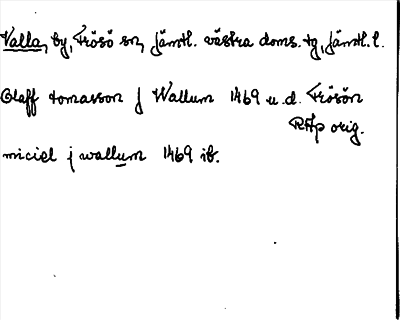 Valla, by, Frösö sn, Jämtl. västra doms. tg, Jämtl. l.
Olaff tomasson j Wallum 1469 u.d. Frösön
RAp orig.
miciel j wallum 1469 ib.